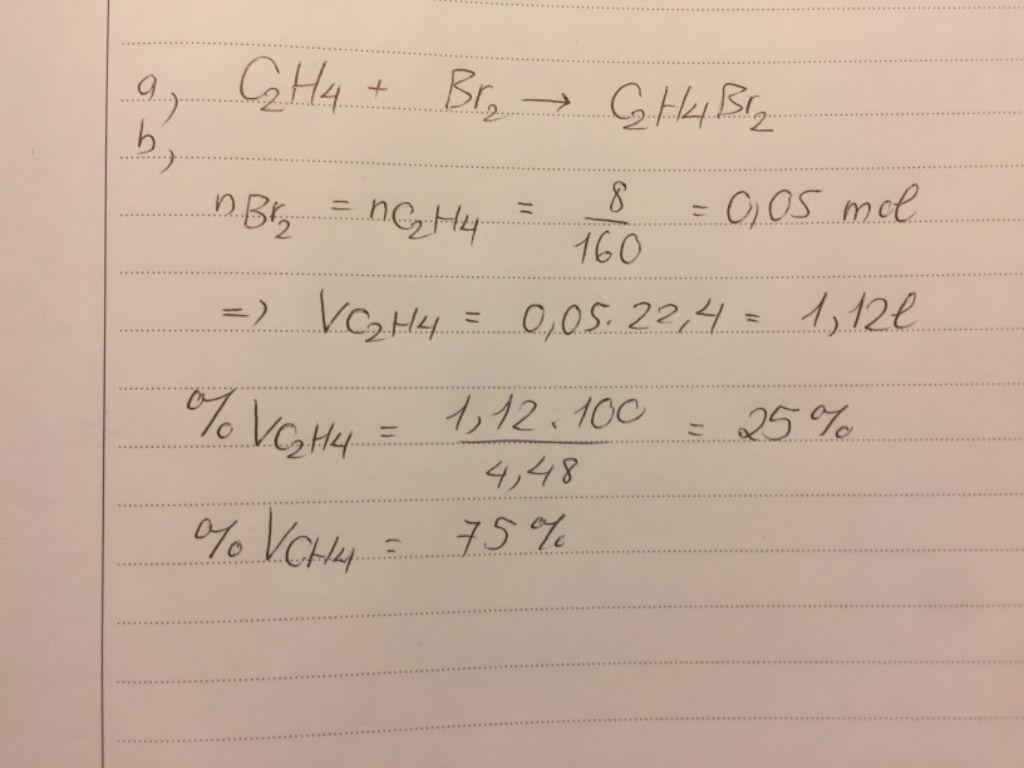 a, C₂H4 + Br₂ → C₂H4Br₂
b,
nBr₂ = nC₂H4 = 8/160 = 0,05 mol
=> VC₂H4 = 0,05. 22,4 = 1,12l
%VC₂H4 = 1,12.100/4,48 = 25%
%VCH4 = 75%